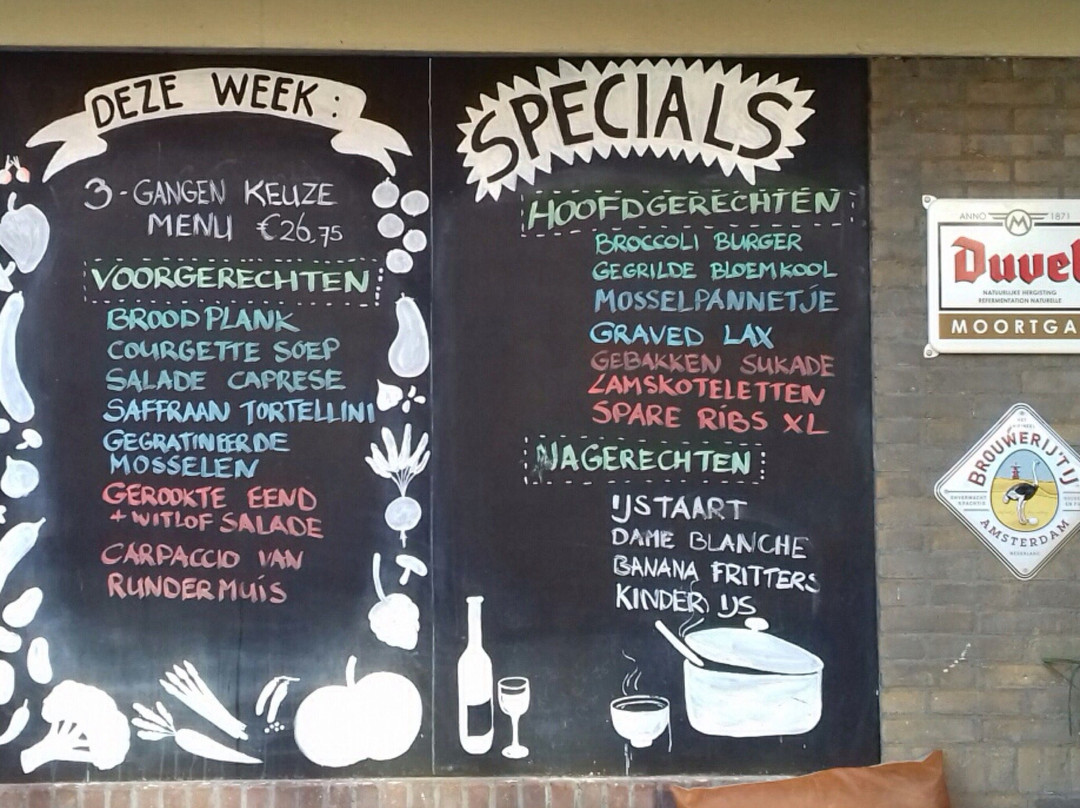 DEZE WEEK:
3-GANGEN KEUZE
MENU €26,75
VOORGERECHTEN
BROODPLANK
COURGETTE SOEP
SALADE CAPRESE
SAFFRAAN TORTELLINI
GEGRATINEERDE
MOSSELEN
GEROOKTE EEND
+ WITLOF SALADE
CARPACCIO VAN
RUNDERMUIS
SPECIALS
HOOFDGERECHTEN
BROCCOLI BURGER
GEGRILDE BLOEMKOOL
MOSSELPANNETJE
GRAVED LAX
GEBAKKEN SUKADE
LAMSKOTELETTEN
SPARE RIBS XL
NAGERECHTEN
IJSTAART
DAME BLANCHE
BANANA FRITTERS
KINDER IJS
ANNO M 1871
Duvel
NATUURLIJKE HERGISTING
REFERMENTATION NATURELLE
MOORTGA
BROUWERIJ'T IJ
AMSTERDAM
NEDERLAND